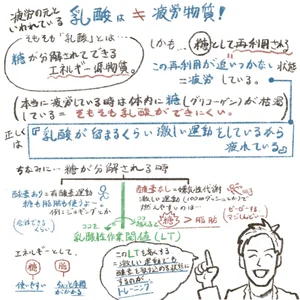 疲労の元と
いわれている
乳酸は≠疲労物質!
そもそも「乳酸」とは…
糖が分解されてできる
エネルギー源物質。
しかも…糖として再利用される
この再利用が追いつかない状態
=疲労している。
(本当に疲労している時は体内に糖(グリコーゲン)が枯渇
している=そもそも乳酸ができにくい。
正しくは
『乳酸が溜まるくらい激しい運動をしているから
疲れている』
ちなみに…糖が分解される時
酸素あり=有酸素運動
糖も脂肪も使うよー
例にジョギングとか
酸素なし=嫌気性代謝
激しい運動(100mダッシュとか)で
糖>脂肪
ココを
乳酸性作業閾値(LT)
エネルギーとして、
糖
脂
使いやすい
このLTを高くする
=激しい運動でも
トレーニング